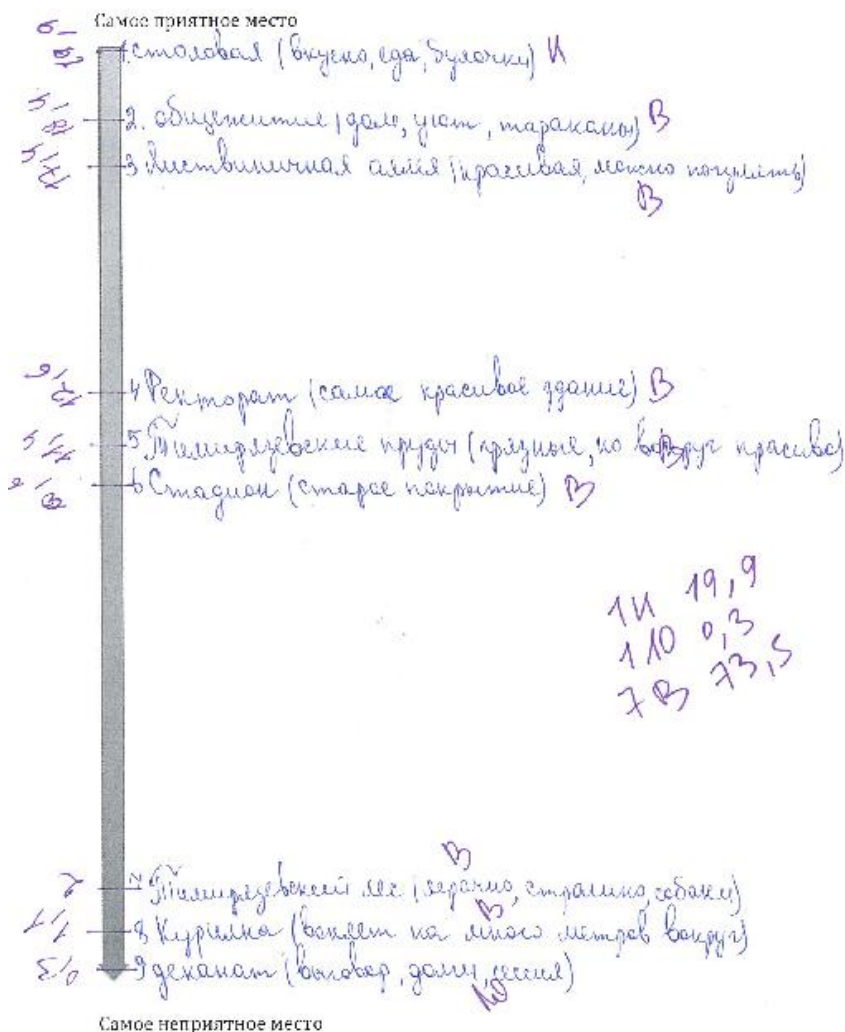 Самое приятное место
1. столовая (вкусно, еда, булочки) И
2. общежитие (дом, уют, тараканы) В
3 Лиственичная аллея (красивая, можно погулять)
В
4 Ректорат (самое красивое здание) В
5 Тимирязевские пруды (грязные, но вокруг красиво)
В
6 Стадион (старое покрытие) В
1И 19,9
1 Ю 0,3
7В 73,5
В
7 Тимирязевский лес (мрачно, страшно, собаки)
В
8 Курилка (воняет на много метров вокруг)
9 деканат (выговор, долги, сессия)
Ю
Самое неприятное место
19,9
17,4
12,6
11,4
2
1,1
0,3